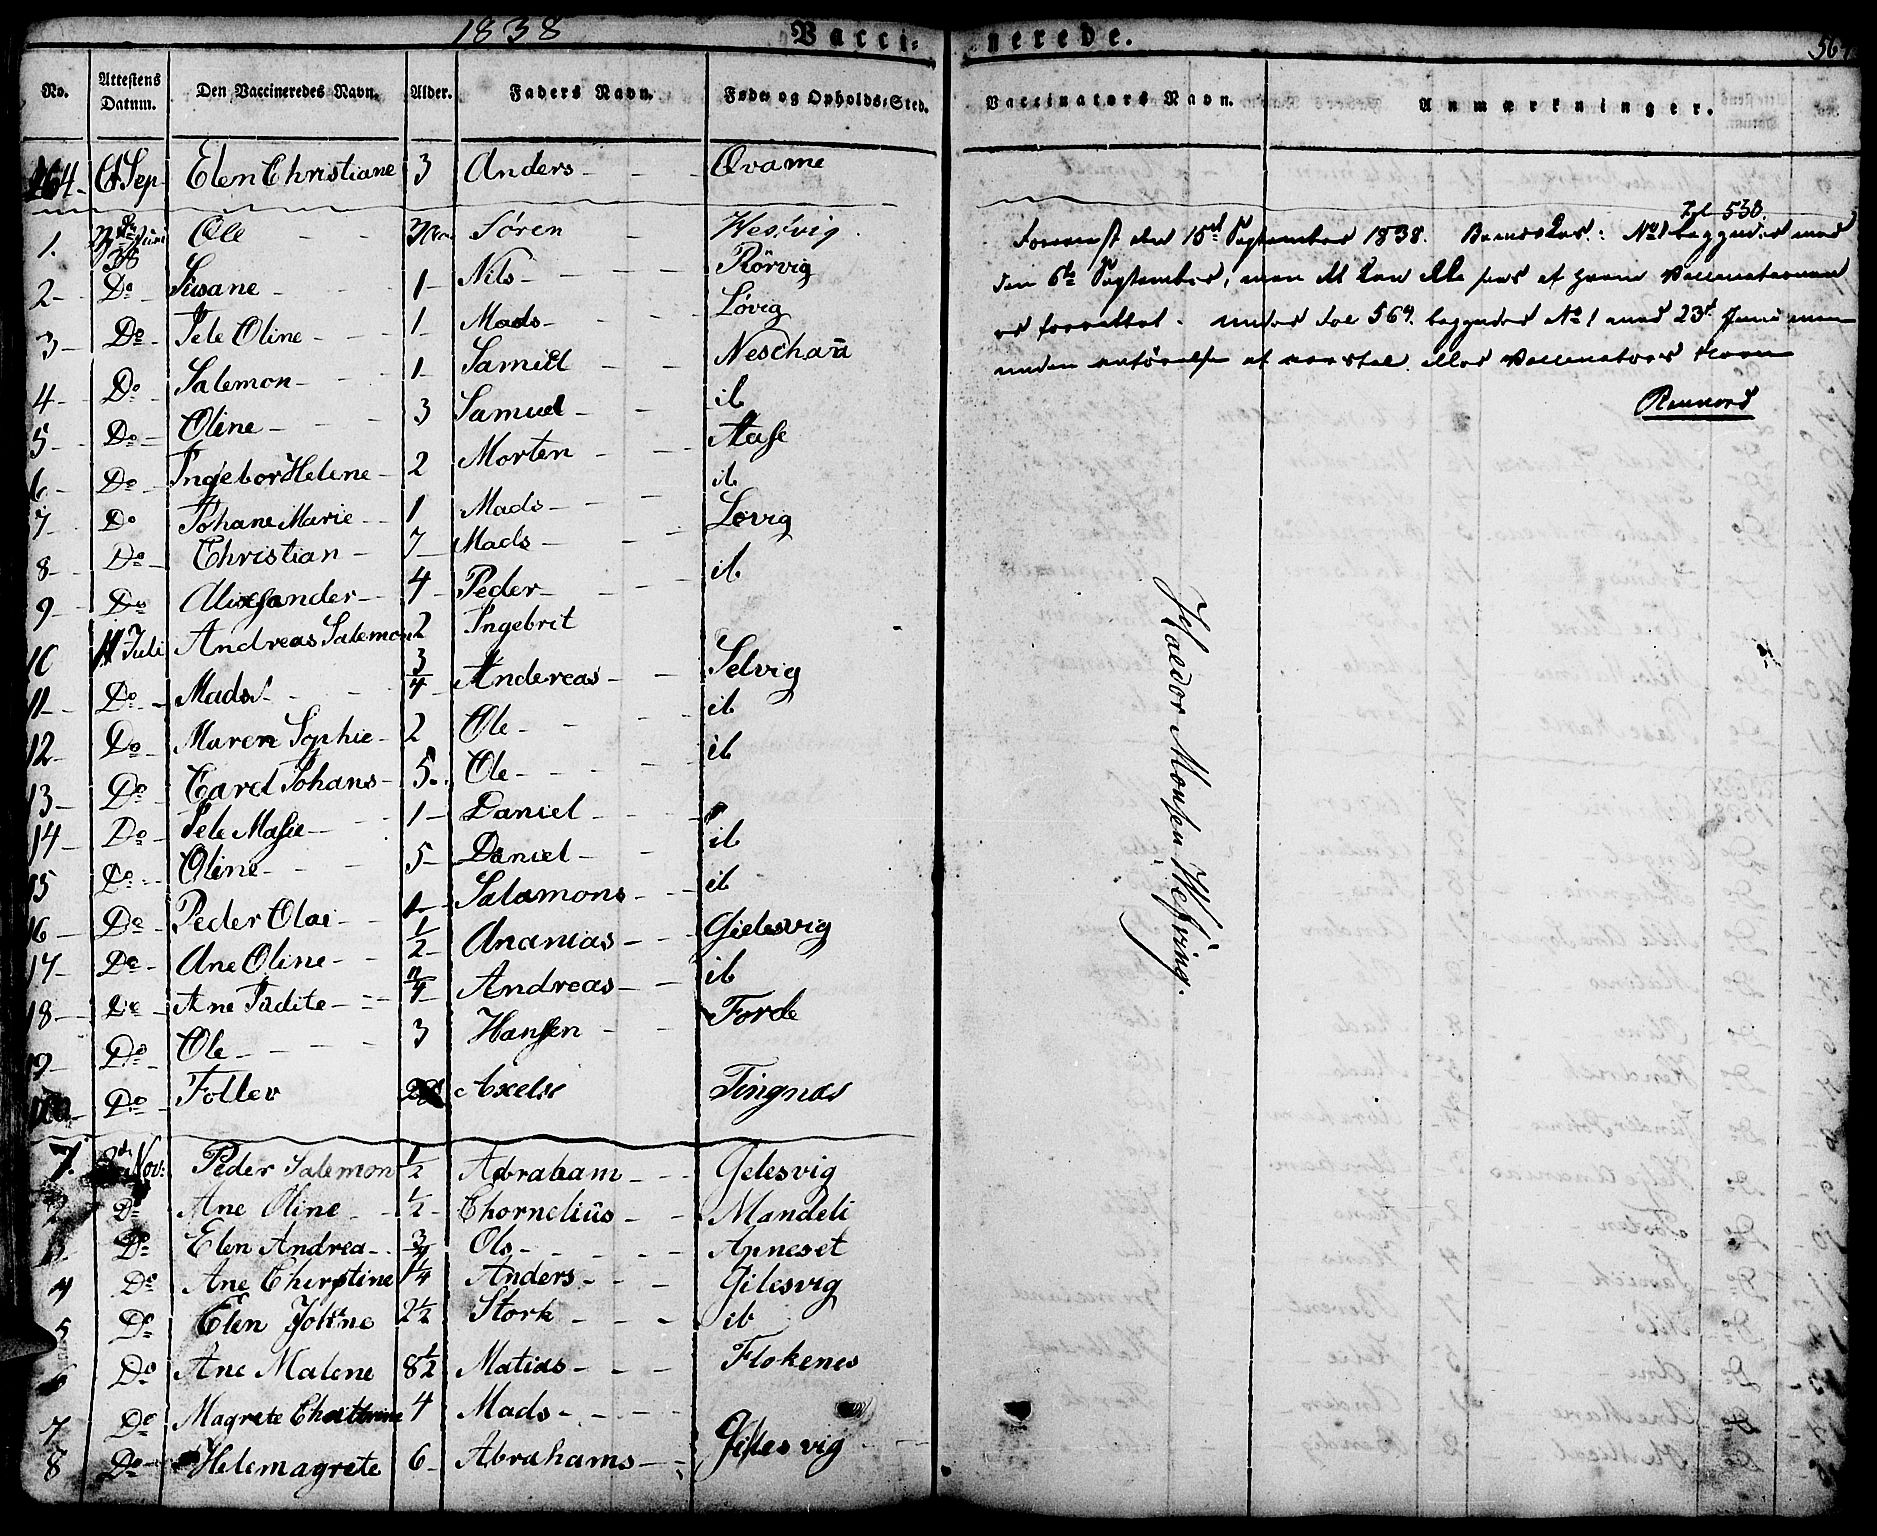 1838 Vacci- nerede. 567
No. Attestens Datum. Den Vaccineredes Navn. Alder. Faders Navn. Føde og Opholds-Sted. Vaccinators Navn. Anmærkninger.
264 Sep Elen Christiane 3 Anders - - Qvame
1. Juni 38 Ole - - Søren - Wesvig.
2 - Do - Susane - - 1 - Nils - - - Rörvig
3 - Do - Pele Oline - - 1 - Mads - - Lövig
4 - Do - Salemon - - 1 - Samuel - - Neschaũ
5 - Do - Oline - - 3 Samuel - - ib
6 - Do - Ingebor Helene - 2 Morten - - Aase
7 - Do Johane Marie - 1 Mads - - ib
8 - Do - Christian - 7 - Mads - - Lovig
9 - Do - Alixsander - 4 - Peder - - ib
10 11 Juli Andreas Salemon 2 Ingebrit
11 - Do - Mads - - 3/4 Andereas - - Selvig
12 - Do - Maren Sophie - 2 Ole - - - ib
13 - Do - Carel Johans - 5 - Ole - - - ib
14 - Do - Pele Masie - - 1 - Daniel - - -
15 Do - Oline - - 5 - Daniel - - ib
16 - Do - Peder Olai - - 1 - Salamons - - ib
17 - Do - Ane Oline - - 1/2 - Ananias - - Gielesvig
18 - Do - Ane Judite - - Andreas - - ib
19 - Do - Ole - - - - 3 Hansen - - Forde
20 Do - Follev Axels Tingnæs
1. Nov: Peder Salemon 1/2 Abraham - - - Gelesvig
2 Do Ane Oline - - 1/2 - Chornelius - - Mandeli
3 - Do Elen Andrea - - 3/4 Ols - - - - - Apneset
4 Do Ane Cherstine 1 1/4 Anders - - - Gilesvig
5 Do Elen Johne 2 1/2 Stork - - - ib
6 Do Ane Malene 8 1/2 Matias - - - Flokenes
7 Do Magrete Chatterine 4 Mads - - - -
8 Do Helemagrete 6 - Abrahams - - - Gilesvig
Fol 538.
den 15d September 1838. No 1 begynder med
den 6te September, men det kan ikke sees at
er forrettet. under fol 567 begynder No 1 med 23d Juni men
uden anförelse af aarstal eller Vaccinators Navn
Haldor Monsen Wefring.